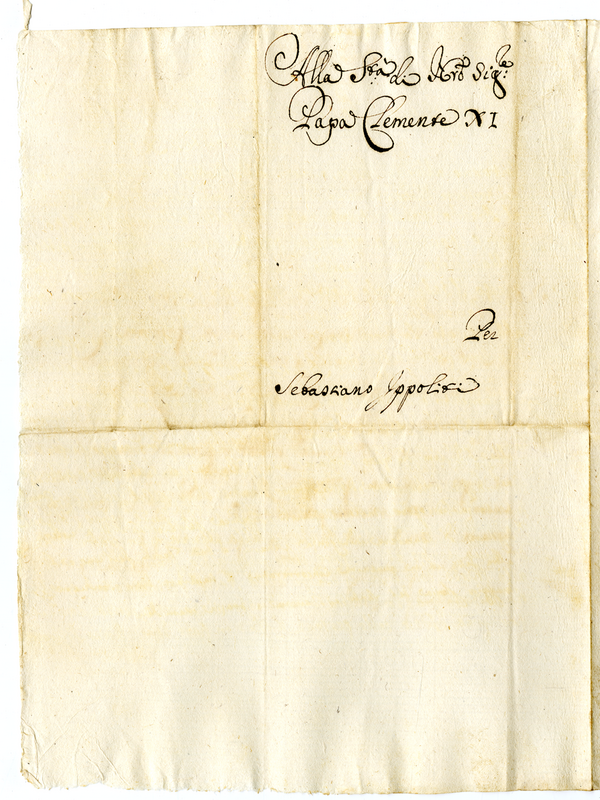 Alla Sta di Nro Sigre
Papa Clemente XI
Per
Sebastiano Ippoliti